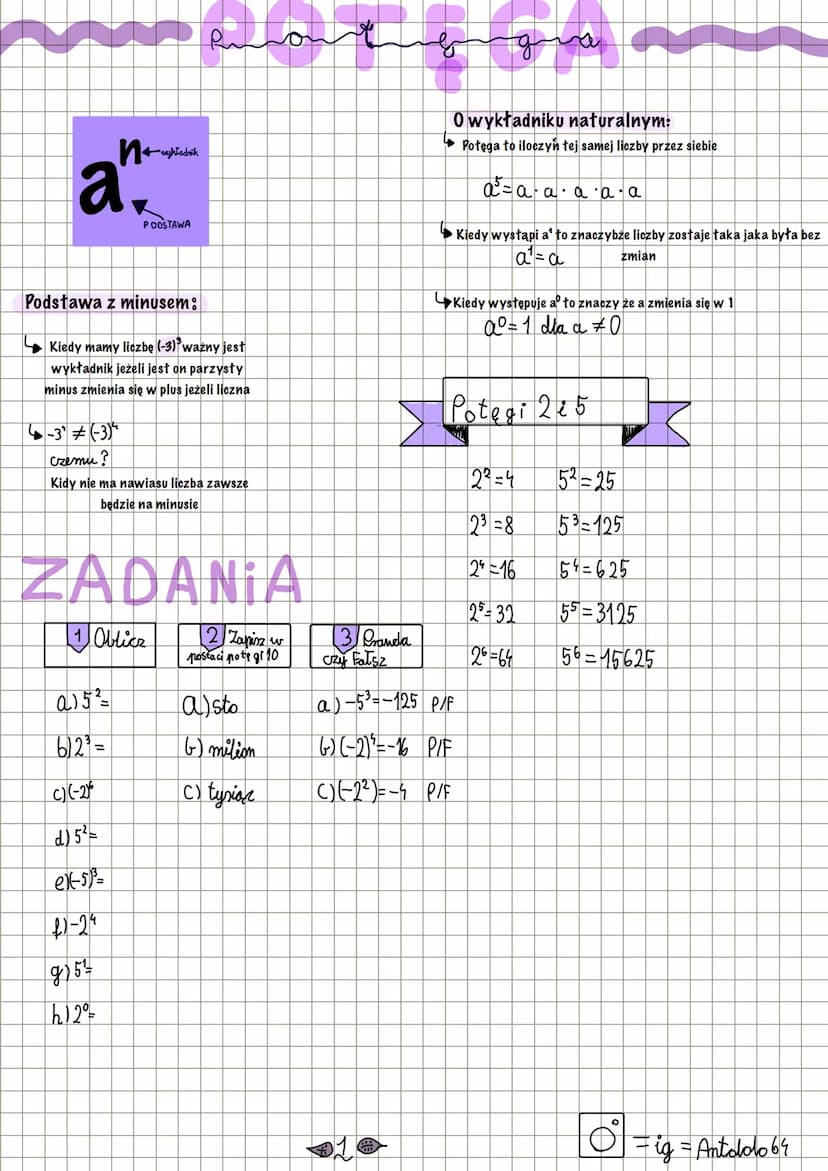 POTĘGA
Potęga
n wykładnik
a
PODSTAWA
O wykładniku naturalnym:
Potęga to iloczyń tej samej liczby przez siebie
a⁵=a·a·a·a·a
Kiedy wystąpi a¹ to znaczybże liczby zostaje taka jaka była bez
zmian
a¹=a
Kiedy występuje a⁰ to znaczy że a zmienia się w 1
a⁰=1 dla a ≠ 0
Podstawa z minusem:
Kiedy mamy liczbę (-3)³ ważny jest
wykładnik jeżeli jest on parzysty
minus zmienia się w plus jeżeli liczna
≠ (-3)⁴
czemu?
Kidy nie ma nawiasu liczba zawsze
będzie na minusie
Potęgi 2 i 5
2²=4 5²=25
2³=8 5³=125
2⁴=16 5⁴=625
2⁵=32 5⁵=3125
2⁶=64 5⁶=15625
ZADANiA
1 Oblicz
a) 5²=
b) 2³=
c) (-2)⁶
d) 5²=
e) (-5)³=
f) -2⁴
g) 5¹=
h) 2⁰=
2 Zapisz w
postaci potęgi 10
a) sto
b) milion
c) tysiąc
3 Prawda
czy Fałsz
a) -5³=-125 P/F
b) (-2)⁴=-16 P/F
c) (-2²)=-4 P/F
1
= ig = Antololo64